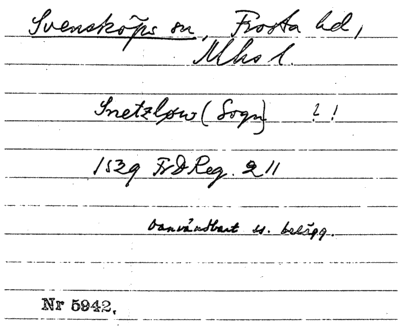 Svensköps sn, Frosta hd,
Mhs l.
Snetzløw (Sogn) ? !
1529 Fr d Reg. 211
oanvändbart ss. belägg.
Nr 5942.